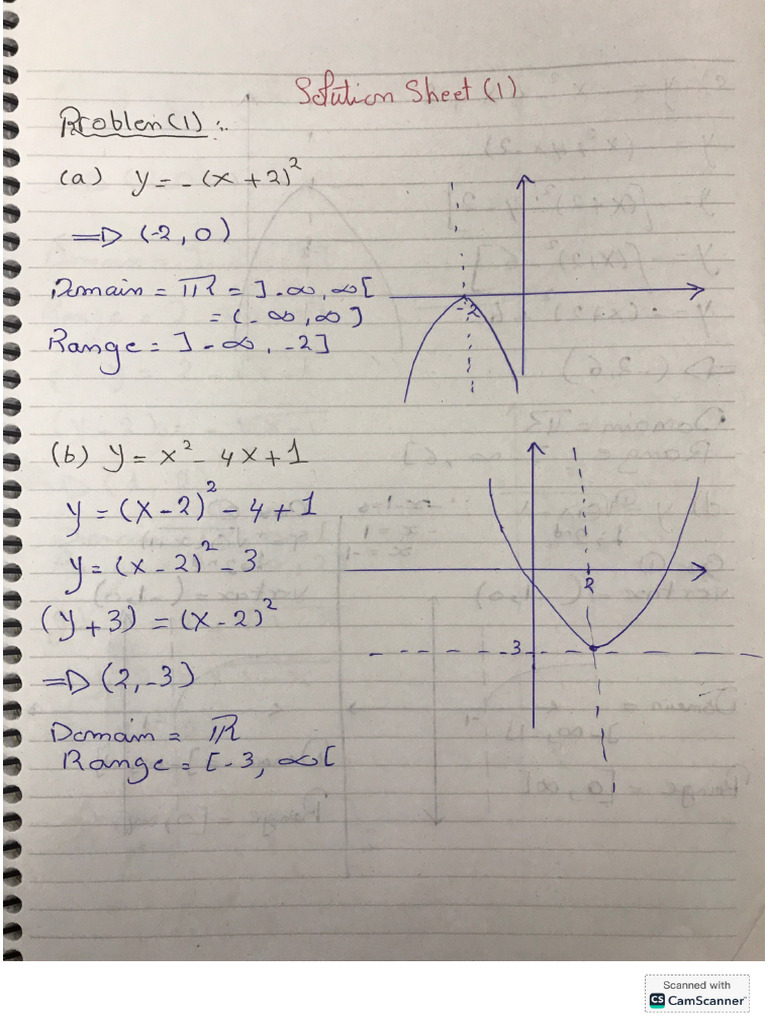 Solution Sheet (1)
Problem (1) :.
(a) y = -(x + 2)²
⇒ (-2, 0)
-2
Domain = ℝ = ]-∞, ∞[
= (-∞, ∞]
Range = ]-∞, -2]
(b) y = x² - 4x + 1
y = (x - 2)² - 4 + 1
y = (x - 2)² - 3
2
(y + 3) = (x - 2)²
-3
⇒ (2, -3)
Domain = ℝ
Range = [-3, ∞[
Scanned with
CS CamScanner